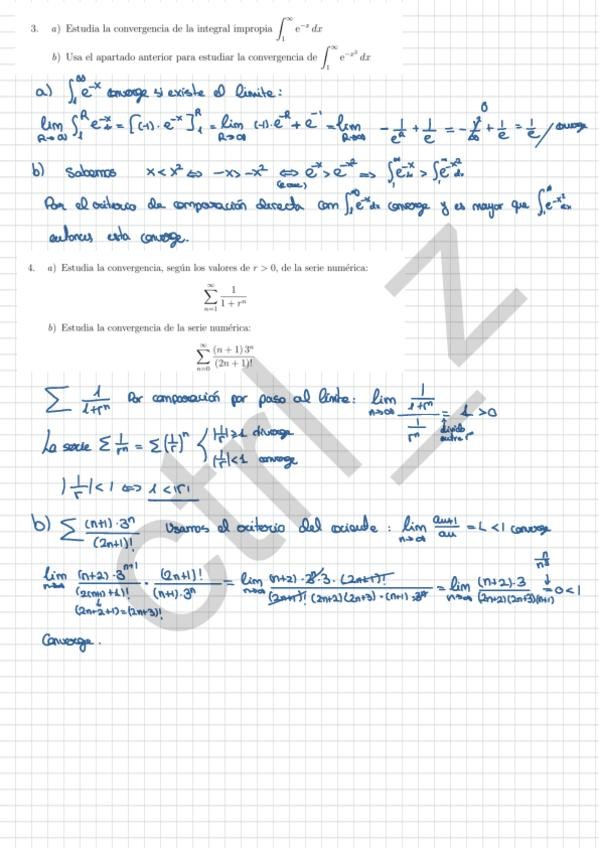 3. a) Estudia la convergencia de la integral impropia ∫₁^∞ e^{-x} dx
b) Usa el apartado anterior para estudiar la convergencia de ∫₁^∞ e^{-x²} dx
a) ∫₁^∞ e^{-x} converge si existe el límite:
lim_{R→∞} ∫₁^R e^{-x} dx = [(-1)·e^{-x}]₁^R = lim_{R→∞} (-1)·e^{-R} + e^{-1} = lim_{R→∞} -1/e^R + 1/e = -1/∞ + 1/e = 1/e / converge
b) Sabemos x < x² ⇔ -x > -x² ⇔ e^{-x} > e^{-x²} ⇒ ∫₁^∞ e^{-x} dx > ∫₁^∞ e^{-x²} dx
Por el criterio de comparación directa com ∫₁^∞ e^{-x} dx converge y es mayor que ∫₁^∞ e^{-x²} dx
entonces esta converge.
4. a) Estudia la convergencia, según los valores de r > 0, de la serie numérica:
∑_{n=1}^∞ 1/(1 + rⁿ)
b) Estudia la convergencia de la serie numérica:
∑_{n=0}^∞ (n + 1) 3ⁿ/(2n + 1)!
∑ 1/(1+rⁿ) Por comparación por paso al límite: lim_{n→∞} (1/(1+rⁿ))/(1/rⁿ) = 1 > 0
divido entre rⁿ
La serie ∑ 1/rⁿ = ∑ (1/r)ⁿ { |1/r| ≥ 1 diverge
|1/r| < 1 converge
|1/r| < 1 ⇔ 1 < |r|
b) ∑ (n+1)·3ⁿ/(2n+1)! Usamos el criterio del cociente: lim_{n→∞} aₙ₊₁/aₙ = L < 1 converge
lim_{n→∞} (n+2)·3^{n+1}/(2(n+1)+1)! · (2n+1)!/((n+1)·3ⁿ) = lim_{n→∞} (n+2)·3ⁿ·3·(2n+1)!/((2n+1)!(2n+2)(2n+3)·(n+1)·3ⁿ) = lim_{n→∞} (n+2)·3/((2n+2)(2n+3)(n+1)) = 0 < 1
n/n³
(2n+2+1) = (2n+3)!
Converge.
ctrl_z